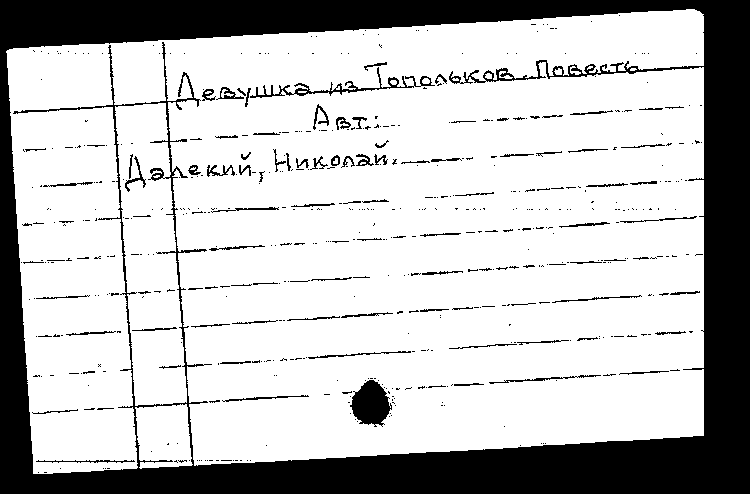 Девушка из Топольков. Повесть
Авт.:
Далекий, Николай.